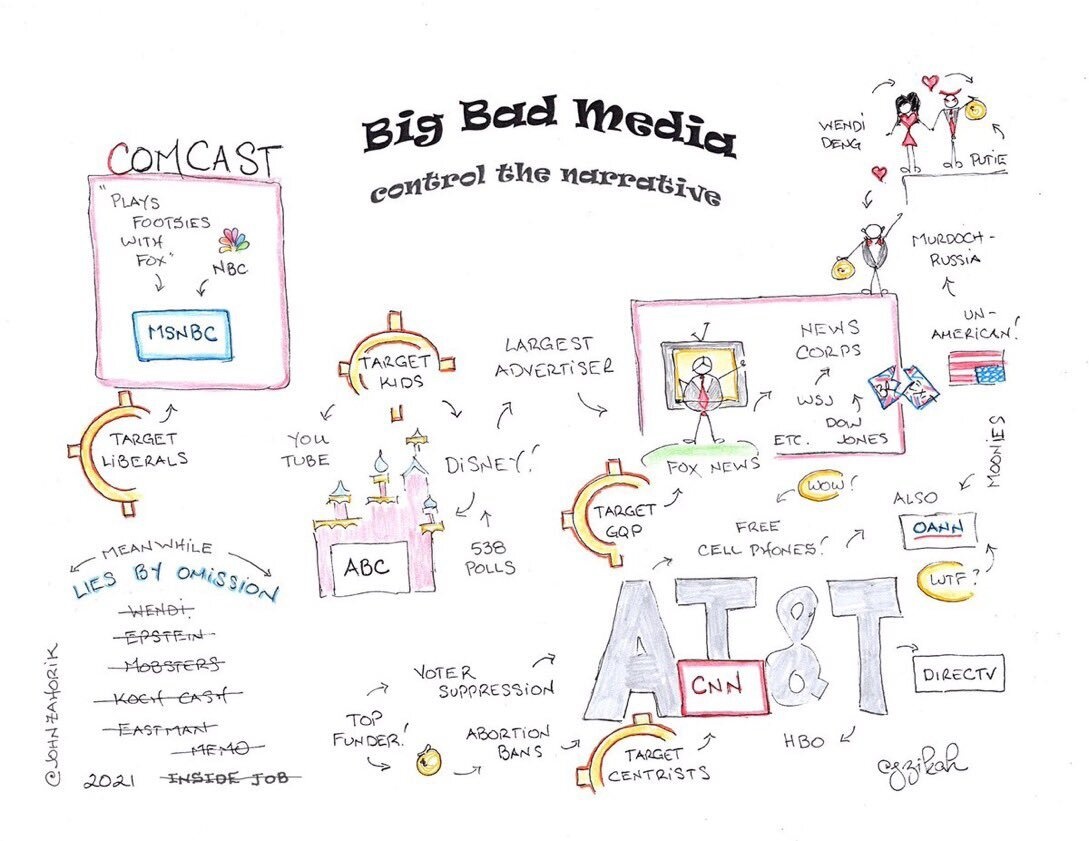 Big Bad Media
control the narrative
COMCAST
"PLAYS
FOOTSIES
WITH
FOX"
NBC
MSNBC
TARGET
LIBERALS
TARGET
KIDS
YOU
TUBE
DISNEY!
ABC
538
POLLS
LARGEST
ADVERTISER
WENDI
DENG
PUTIE
MURDOCH-
RUSSIA
UN-
AMERICAN!
NEWS
CORPS
WSJ
DOW
JONES
ETC.
FOX NEWS
TARGET
GQP
WOW!
FREE
CELL PHONES!
MOONIES
ALSO
OANN
WTF?
AT&T
CNN
DIRECTV
HBO
TARGET
CENTRISTS
VOTER
SUPPRESSION
TOP
FUNDER!
ABORTION
BANS
MEANWHILE
LIES BY OMISSION
WENDI
EPSTEIN
MOBSTERS
KOCH CASH
EASTMAN
MEMO
INSIDE JOB
2021
@JOHNZAHORIK